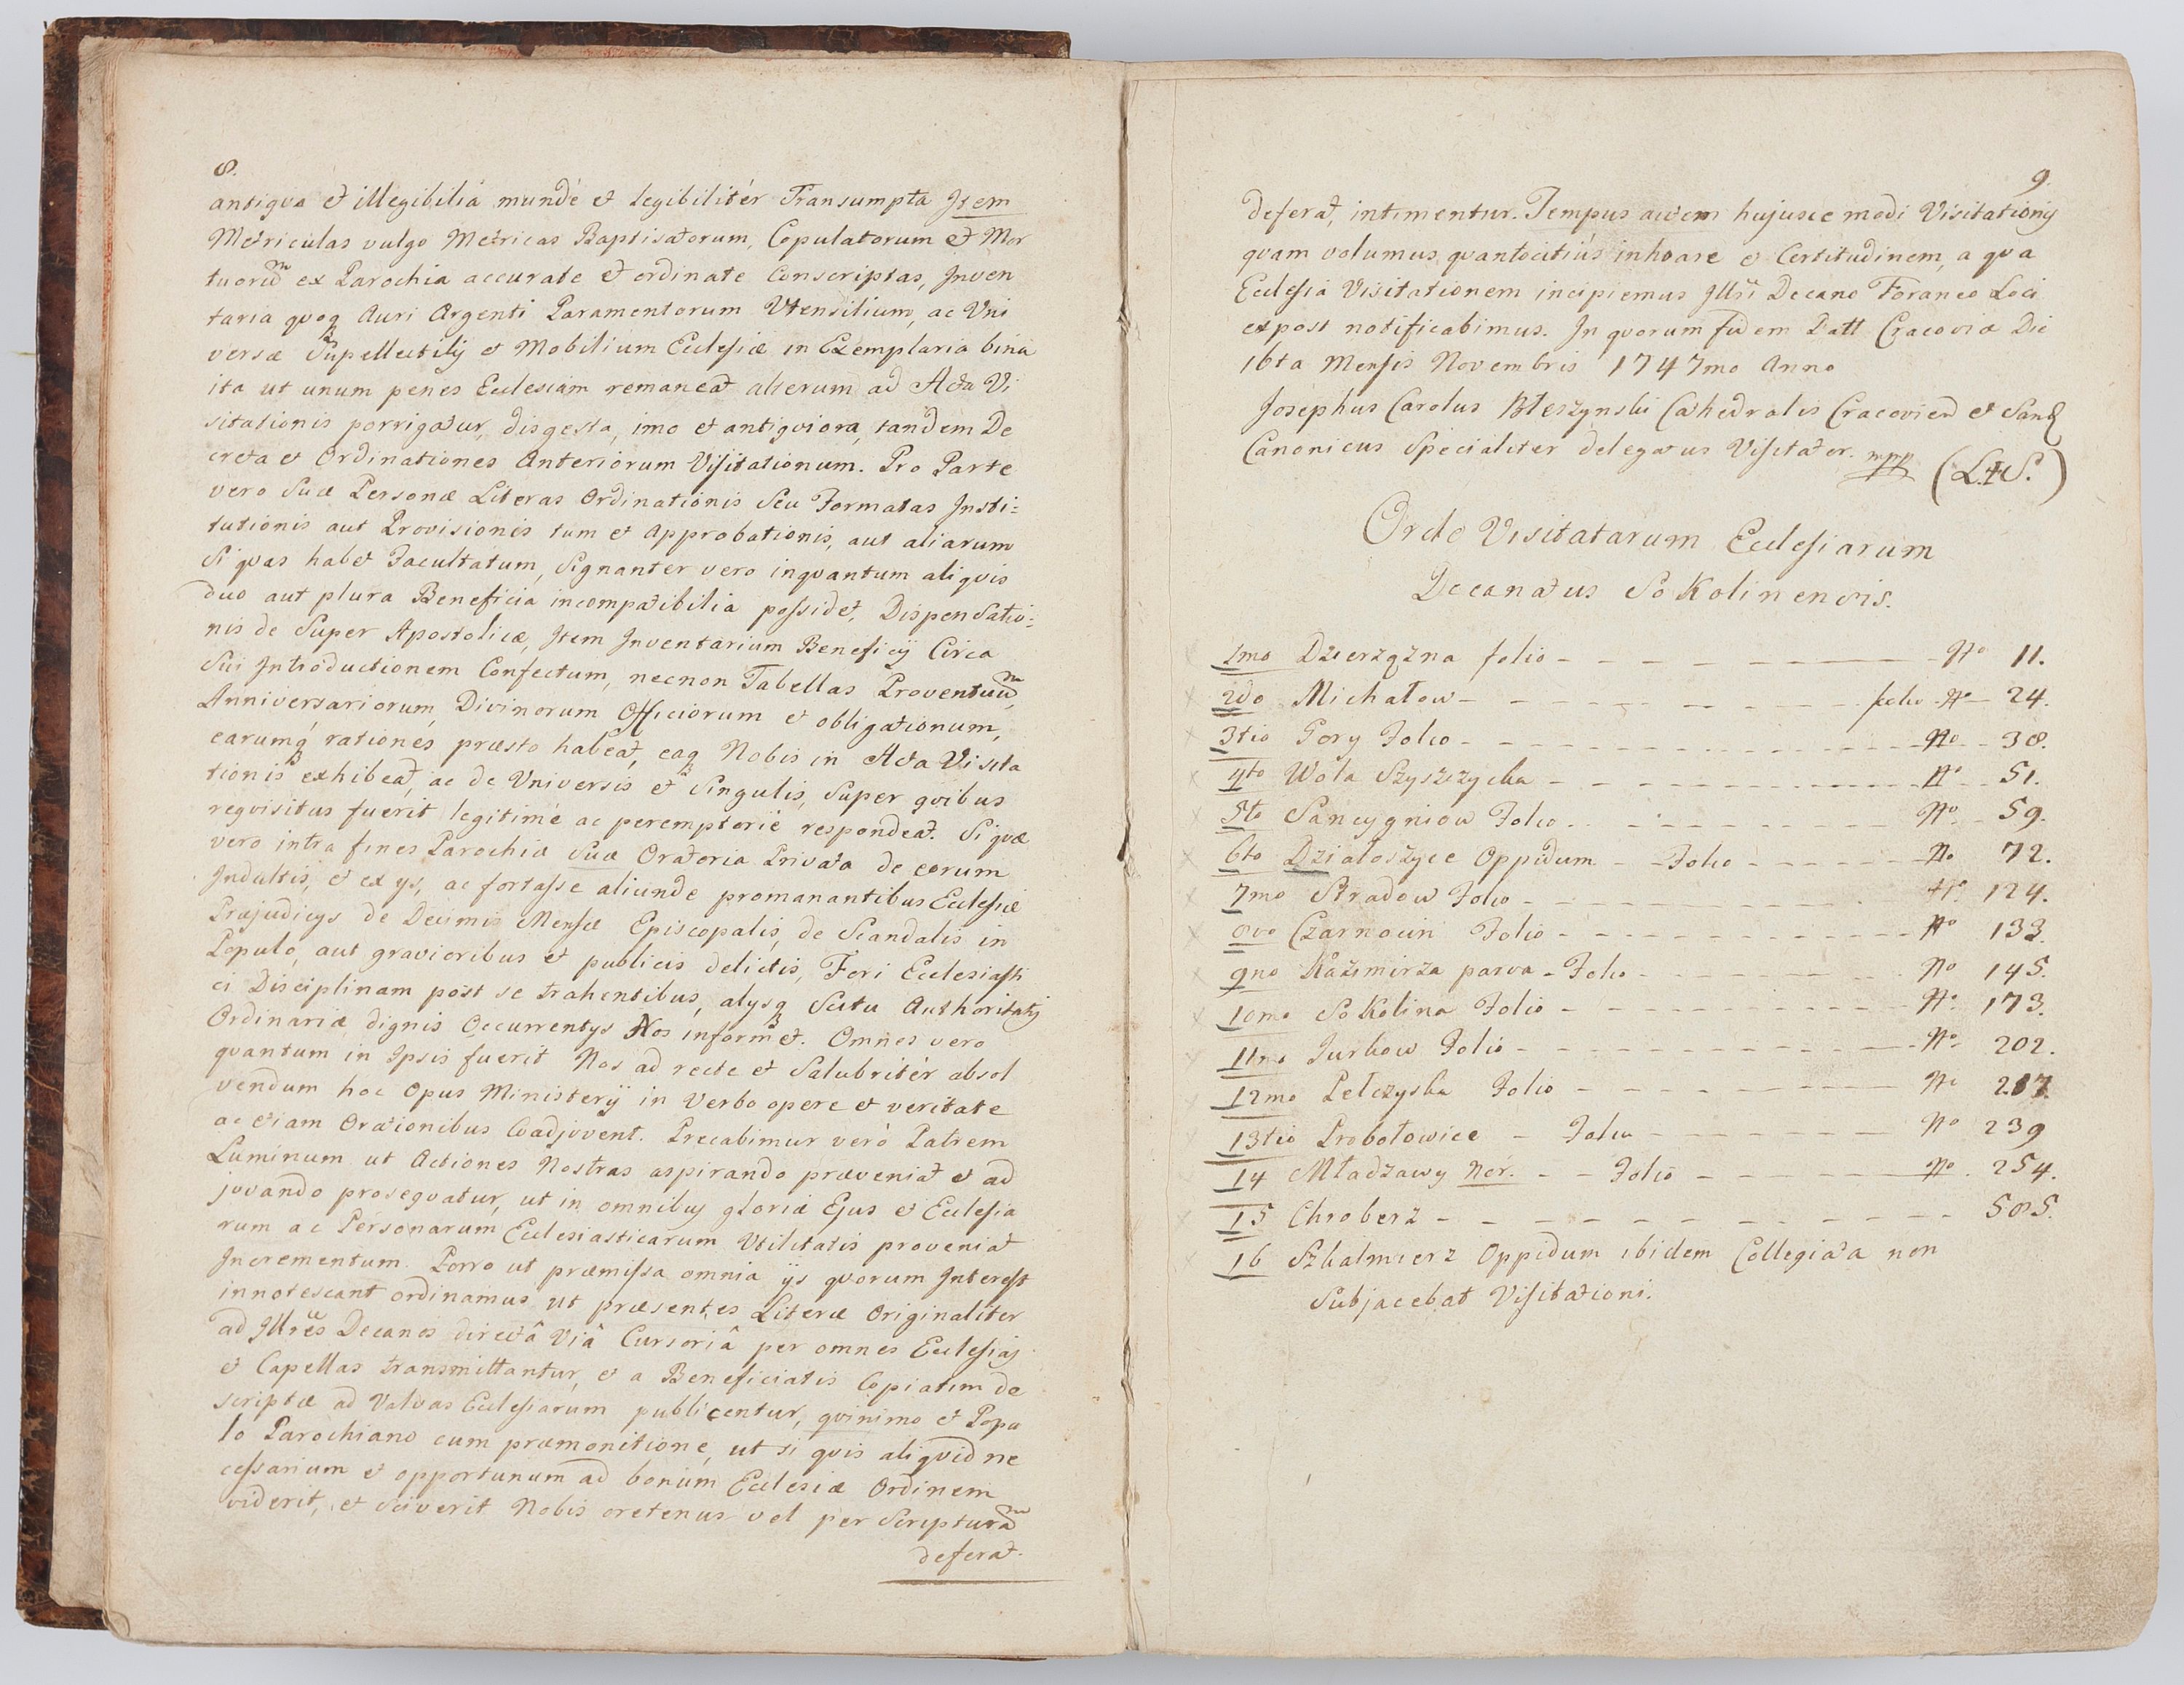 8.
antiqva et illegibilia mundè et legibilitèr Transumpta Item
Metriculas vulgo Metricas Baptisatorum, Copulatorum et Mor
tuorum ex Parochia accurate et ordinate Conscriptas, Inven
taria qvoq Auri Argenti Paramentorum Vtensilium, ac Vni
versæ Supellectilij et Mobilium Ecclesiæ in Exemplaria bina
ita ut unum penes Ecclesiam remaneat alterum ad Acta Vi
sitationis porrigatur, disgesta, imo et antiqviora, tandem De
creta et Ordinationes Anteriorum Visitationum. Pro Parte
vero Suæ Personæ Literas Ordinationis Seu Formatas Insti:
tutionis aut Provisionis tum et Approbationis, aut aliarum
Si qvas habet Facultatum, Signanter vero inqvantum aliqvis
duo aut plura Beneficia incompatibilia possidet, Dispensatio:
nis de Super Apostolicæ, Item Inventarium Beneficij Circa
Sui Introductionem Confectum, necnon Tabellas Proventuum,
Anniversariorum, Divinorum Officiorum et obligationum,
earumq rationes præsto habeat, eaq Nobis in Acta Visita
tionis exhibeat, ac de Universis et Singulis, Super qvibus
reqvisitus fuerit legitimè ac peremptoriè respondeat. Si qvæ
vero intra fines Parochiæ Suæ Oratoria Privata de eorum
Indultis, et ex ijs, ac fortasse aliunde promanantibus Ecclesiæ
Præjudicijs de Decimis Mensæ Episcopalis, de Scandalis in
Populo, aut gravioribus et publicis delictis, Fori Ecclesiasti
ci Disciplinam post se trahentibus, alijsq Scitu Authoritatij
Ordinariæ dignis Occurrentijs Nos informet. Omnes vero
qvantum in Ipsis fuerit Nos ad recte et Salubritèr absol
vendum hoc Opus Ministerij in Verbo opere et veritate
ac etiam Orationibus Coadjuvent. Precabimur verò Patrem
Luminum ut Actiones Nostras aspirando præveniat et ad
juvando proseqvatur, ut in omnibus gloria Ejus et Ecclesia
rum ac Personarum Ecclesiasticarum Utilitatis proveniat
Incrementum. Porro ut præmissa omnia ijs qvorum Interest
innotescant ordinamus ut præsentes Literæ Originaliter
ad Illres Decanos directâ Viâ Cursoriâ per omnes Ecclesias
et Capellas transmittantur, et a Beneficiatis Copiatim de
scriptæ ad Valvas Ecclesiarum publicentur, qvinimo et Popu
lo Parochiano cum præmonitione, ut si qvis aliqvid ne
cessarium et opportunum ad bonum Ecclesiæ Ordinem
viderit, et Sciverit Nobis oretenus vel per Scripturam
deferat.
9.
deferat, intimentur. Tempus autem hujusce modi Visitationij
qvam volumus qvantocitiùs inhoare et Certitudinem, a qva
Ecclesia Visitationem incipiemus Illri Decano Foraneo Loci
expost notificabimus. In qvorum fidem Datt Cracoviæ Die
16ta Mensis Novembris 1747mo Anno
Josephus Carolus Błeszynski Cathedralis Cracovien et Sand
Canonicus Specialiter delegatus Visitator. mpp (L.+S.)
Ordo Visitatarum Ecclesiarum
Decanatus Sokolinensis.
1mo Dzierzązna folio No 11.
2do Michałow folio No 24.
3tio Gory Folio No 38.
4to Wola Szyszzycka No 51.
5to Sancygniow Folio No 59.
6to Działoszyce Oppidum Folio No 72.
7mo Stradow Folio No 124.
8vo Czarnocin Folio No 133.
9no Kazimirza parva Folio No 145.
10mo Sokolina Folio No 173.
11mo Jurkow Folio No 202.
12mo Pełczyska Folio No 217.
13tio Probołowice Folio No 239
14 Mładzawy Nor. Folio No 254.
15 Chroberz 505.
16 Szkalmierz Oppidum ibidem Collegiata non
Subjacebat Visitationi.